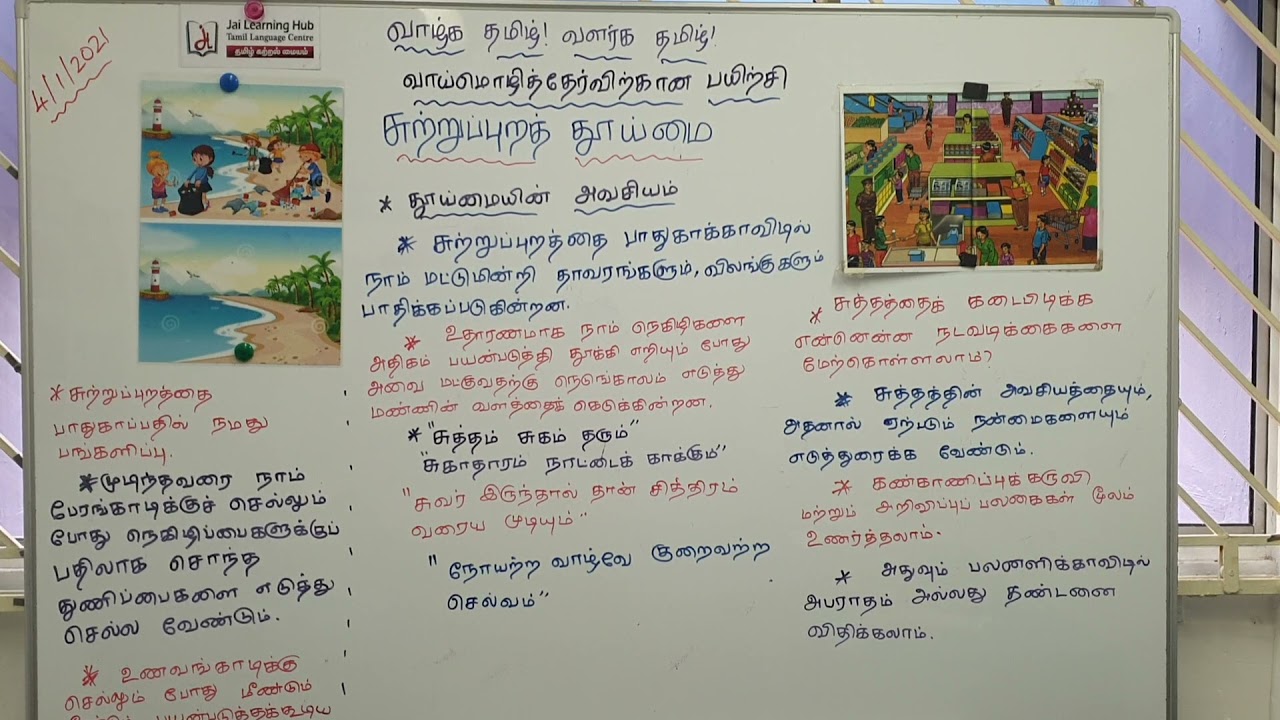 4/1/2021
Jai Learning Hub
Tamil Language Centre
தமிழ் கற்றல் மையம்
வாழ்க தமிழ்! வளர்க தமிழ்!
வாய்மொழித்தேர்விற்கான பயிற்சி
சுற்றுப்புறத் தூய்மை
* தூய்மையின் அவசியம்
* சுற்றுப்புறத்தை பாதுகாக்காவிடில்
நாம் மட்டுமின்றி தாவரங்களும், விலங்குகளும்
பாதிக்கப்படுகின்றன.
* உதாரணமாக நாம் நெகிழிகளை
அதிகம் பயன்படுத்தி தூக்கி எறியும் போது
அவை மட்குவதற்கு நெடுங்காலம் எடுத்து
மண்ணின் வளத்தைக் கெடுக்கின்றன.
* "சுத்தம் சுகம் தரும்"
"சுகாதாரம் நாட்டைக் காக்கும்"
"சுவர் இருந்தால் தான் சித்திரம்
வரைய முடியும்"
"நோயற்ற வாழ்வே குறைவற்ற
செல்வம்"
* சுற்றுப்புறத்தை
பாதுகாப்பதில் நமது
பங்களிப்பு.
* முடிந்தவரை நாம்
பேரங்காடிக்குச் செல்லும்
போது நெகிழிப்பைகளுக்குப்
பதிலாக சொந்த
துணிப்பைகளை எடுத்து
செல்ல வேண்டும்.
* உணவங்காடிக்கு
செல்லும் போது மீண்டும்
பயன்படுத்தக்கூடிய
* சுத்தத்தைக் கடைபிடிக்க
என்னென்ன நடவடிக்கைகளை
மேற்கொள்ளலாம்?
* சுத்தத்தின் அவசியத்தையும்,
அதனால் ஏற்படும் நன்மைகளையும்
எடுத்துரைக்க வேண்டும்.
* கண்காணிப்புக் கருவி
மற்றும் அறிவிப்புப் பலகைகள் மூலம்
உணர்த்தலாம்.
* அதுவும் பலனளிக்காவிடில்
அபராதம் அல்லது தண்டனை
விதிக்கலாம்.